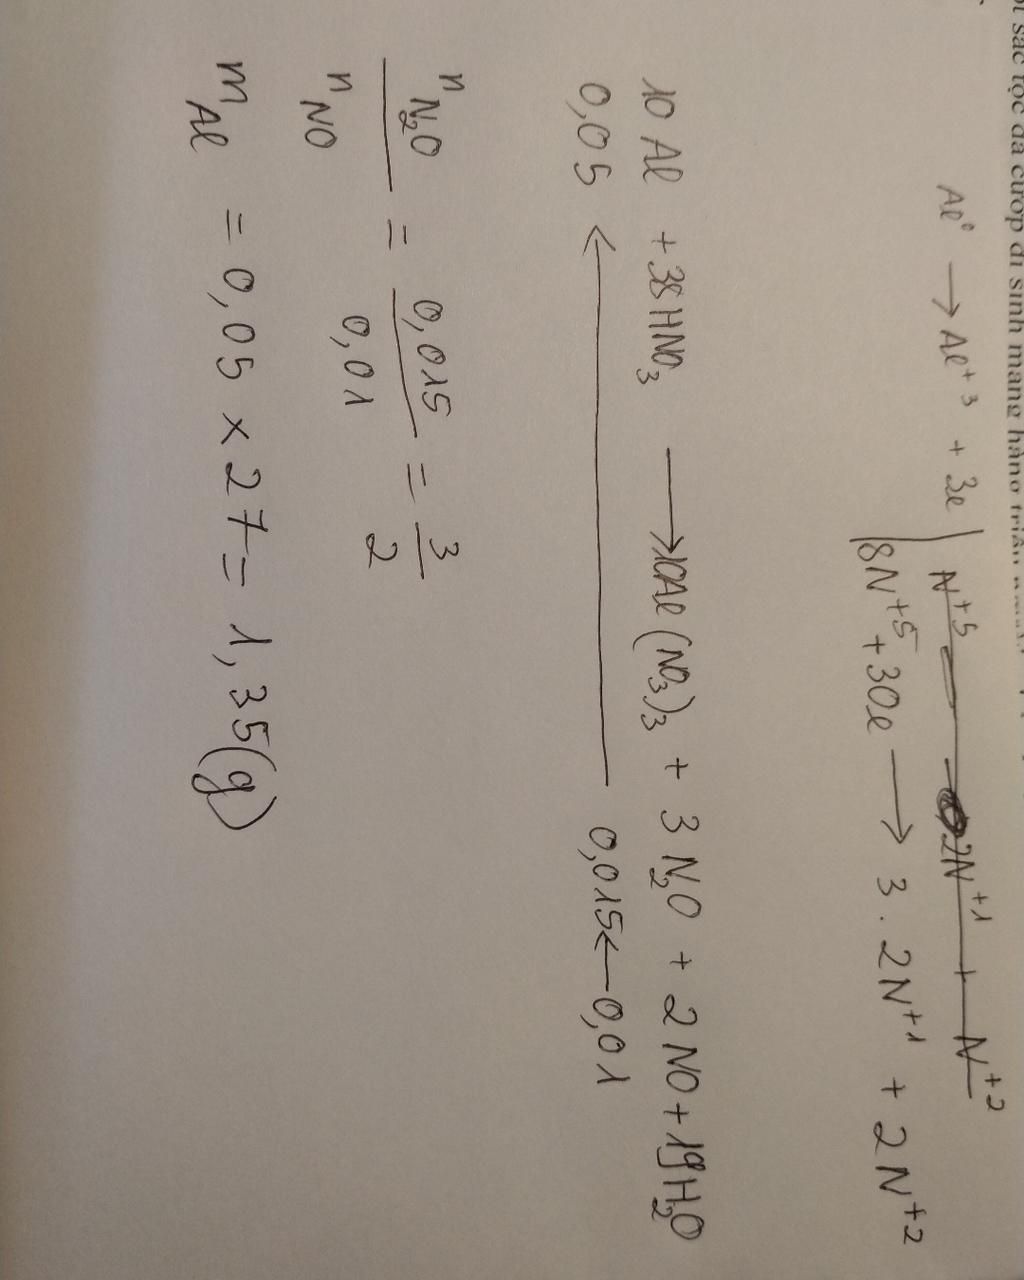 sắc tộc da cướp đi sinh mạng hàng triệu
Al⁰ → Al⁺³ + 3e | N⁺⁵ → 2N⁺¹ + N⁺²
8N⁺⁵ + 30e → 3 . 2N⁺¹ + 2N⁺²
10Al + 38HNO₃ → 10Al(NO₃)₃ + 3N₂O + 2NO + 19H₂O
0,05 ← 0,015 ← 0,01
n N₂O / n NO = 0,015 / 0,01 = 3 / 2
m Al = 0,05 × 27 = 1,35(g)